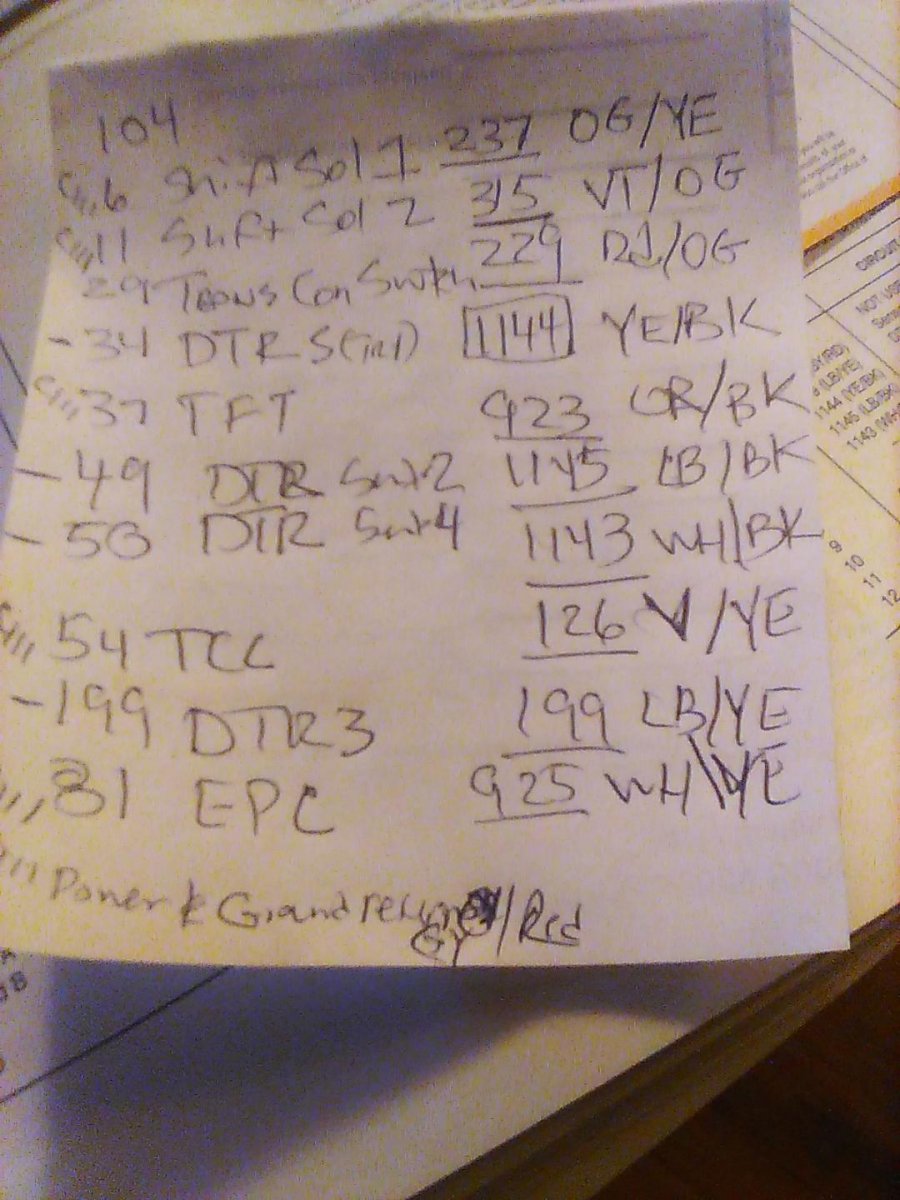 104
6 Shift Sol 1 237 OG/YE
11 Shift Sol 2 315 VT/OG
29 Trans Con Swtch 229 RD/OG
- 34 DTR S 1144 YE/BK
37 TFT 923 OR/BK
- 49 DTR Swt2 1145 LB/BK
- 50 DTR Swt4 1143 WH/BK
54 TCC 126 V/YE
- 199 DTR3 199 LB/YE
81 EPC 925 WH\YE
Power & Ground Gy/Red
CIRCUIT
NOT USE
1144 (YE/BK)
1145 (LB/BK)
9
10
11
12